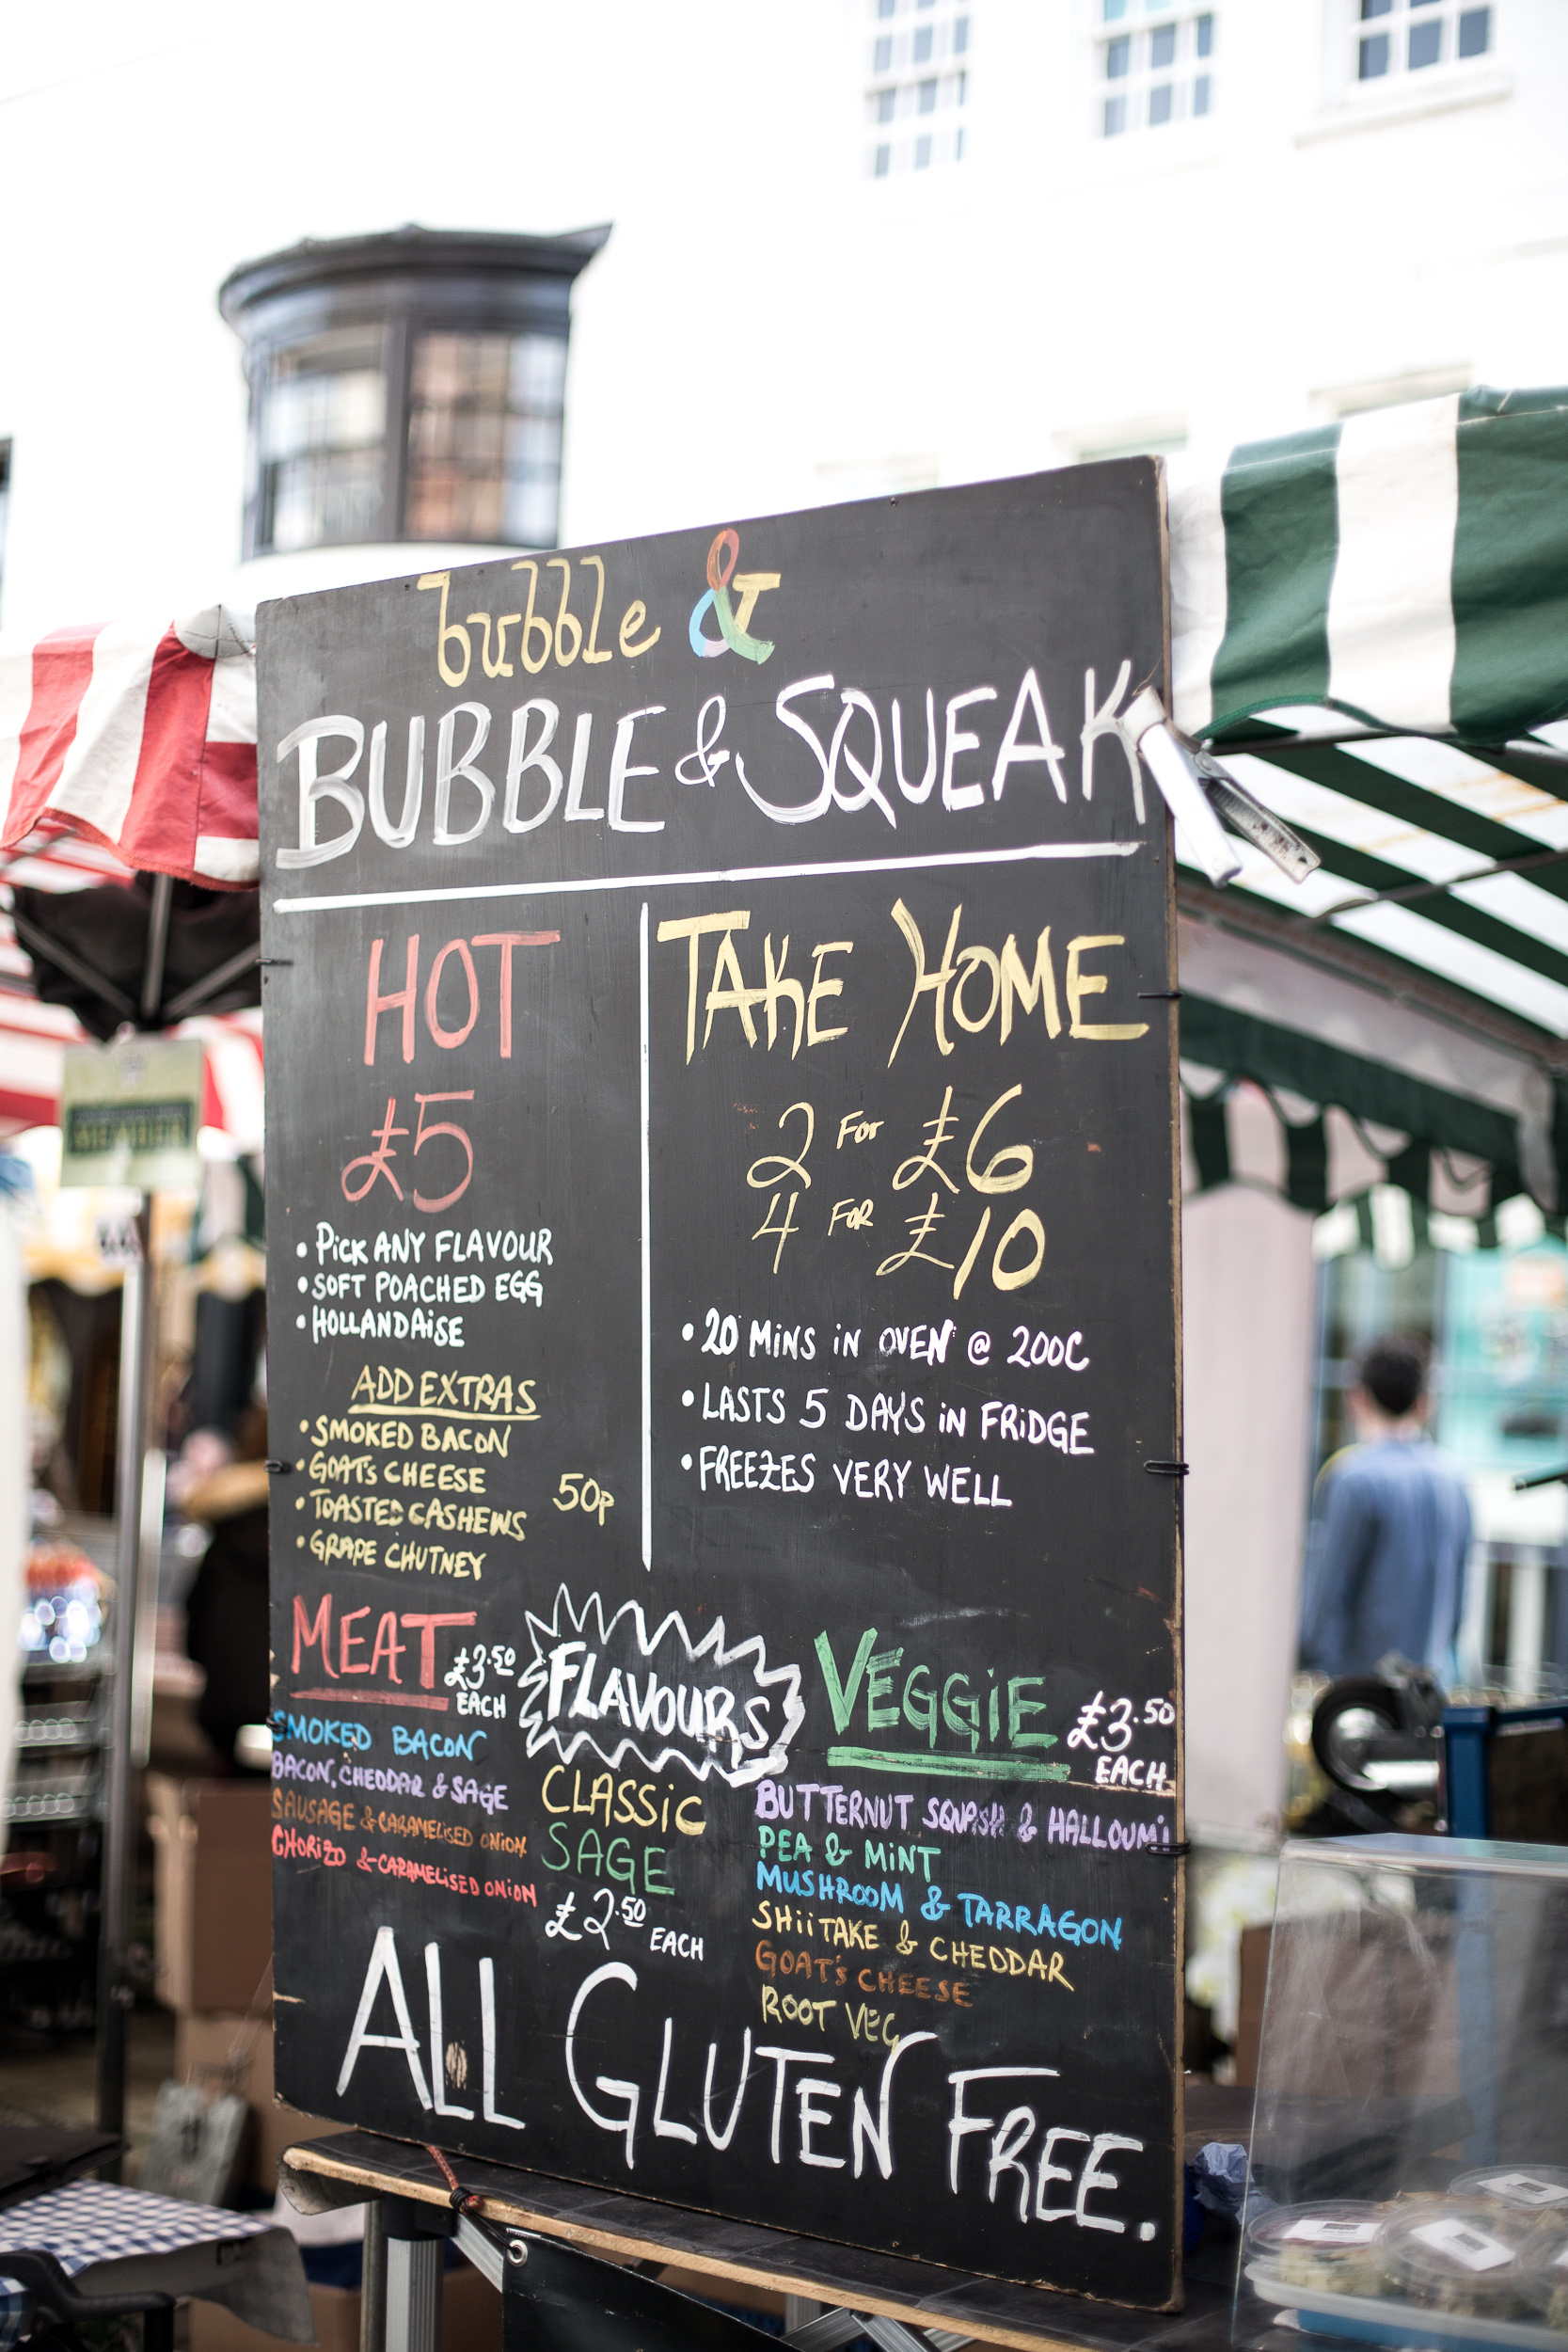 bubble &
BUBBLE & SQUEAK
HOT
£5
• PICK ANY FLAVOUR
• SOFT POACHED EGG
• HOLLANDAISE
ADD EXTRAS
• SMOKED BACON
• GOAT'S CHEESE
• TOASTED CASHEWS
• GRAPE CHUTNEY
50p
TAKE HOME
2 FOR £6
4 FOR £10
• 20 MINS IN OVEN @ 200C
• LASTS 5 DAYS IN FRIDGE
• FREEZES VERY WELL
MEAT £3.50 EACH
SMOKED BACON
BACON, CHEDDAR & SAGE
SAUSAGE & CARAMELISED ONION
CHORIZO & CARAMELISED ONION
FLAVOURS
CLASSIC
SAGE
£2.50 EACH
VEGGIE £3.50 EACH
BUTTERNUT SQUASH & HALLOUMI
PEA & MINT
MUSHROOM & TARRAGON
SHIITAKE & CHEDDAR
GOAT'S CHEESE
ROOT VEG
ALL GLUTEN FREE.